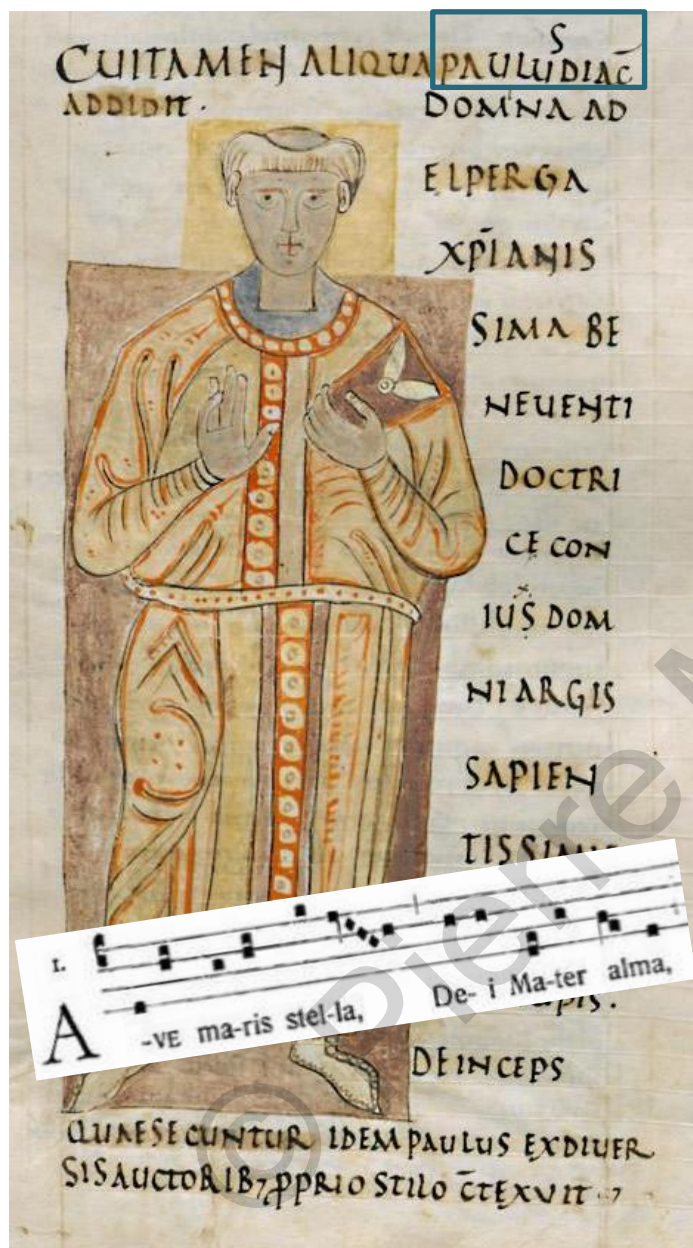 CUITAMEN ALIQUA PAULUS DIAC̄
ADDIDIT. DOMNA AD
ELPERGA
XP̄IANIS
SIMA BE
NEUENTI
DOCTRI
CE CON
IUS DOM
NI ARGIS
SAPIEN
I.
A-VE ma-ris stel-la, De- i Ma-ter alma,
DEINCEPS
QUAESECUNTUR IDEM PAULUS EXDIUER
SISAUCTORIB⁊ PPRIO STILO C̄TEXUIT ·⁊
© Pierre M